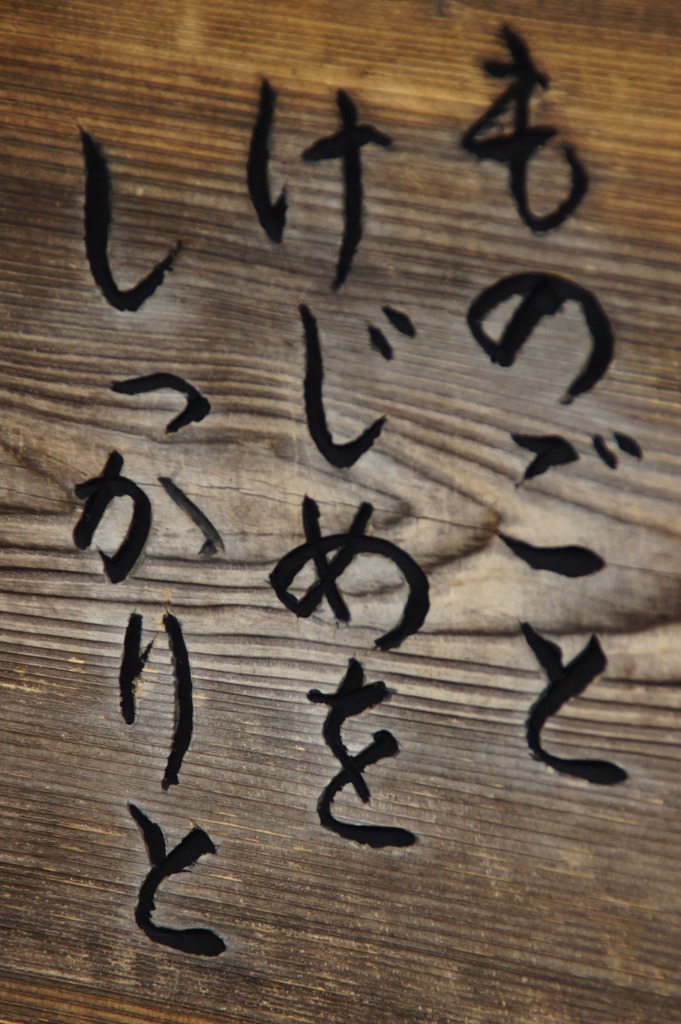 ものごと
けじめを
しっかりと